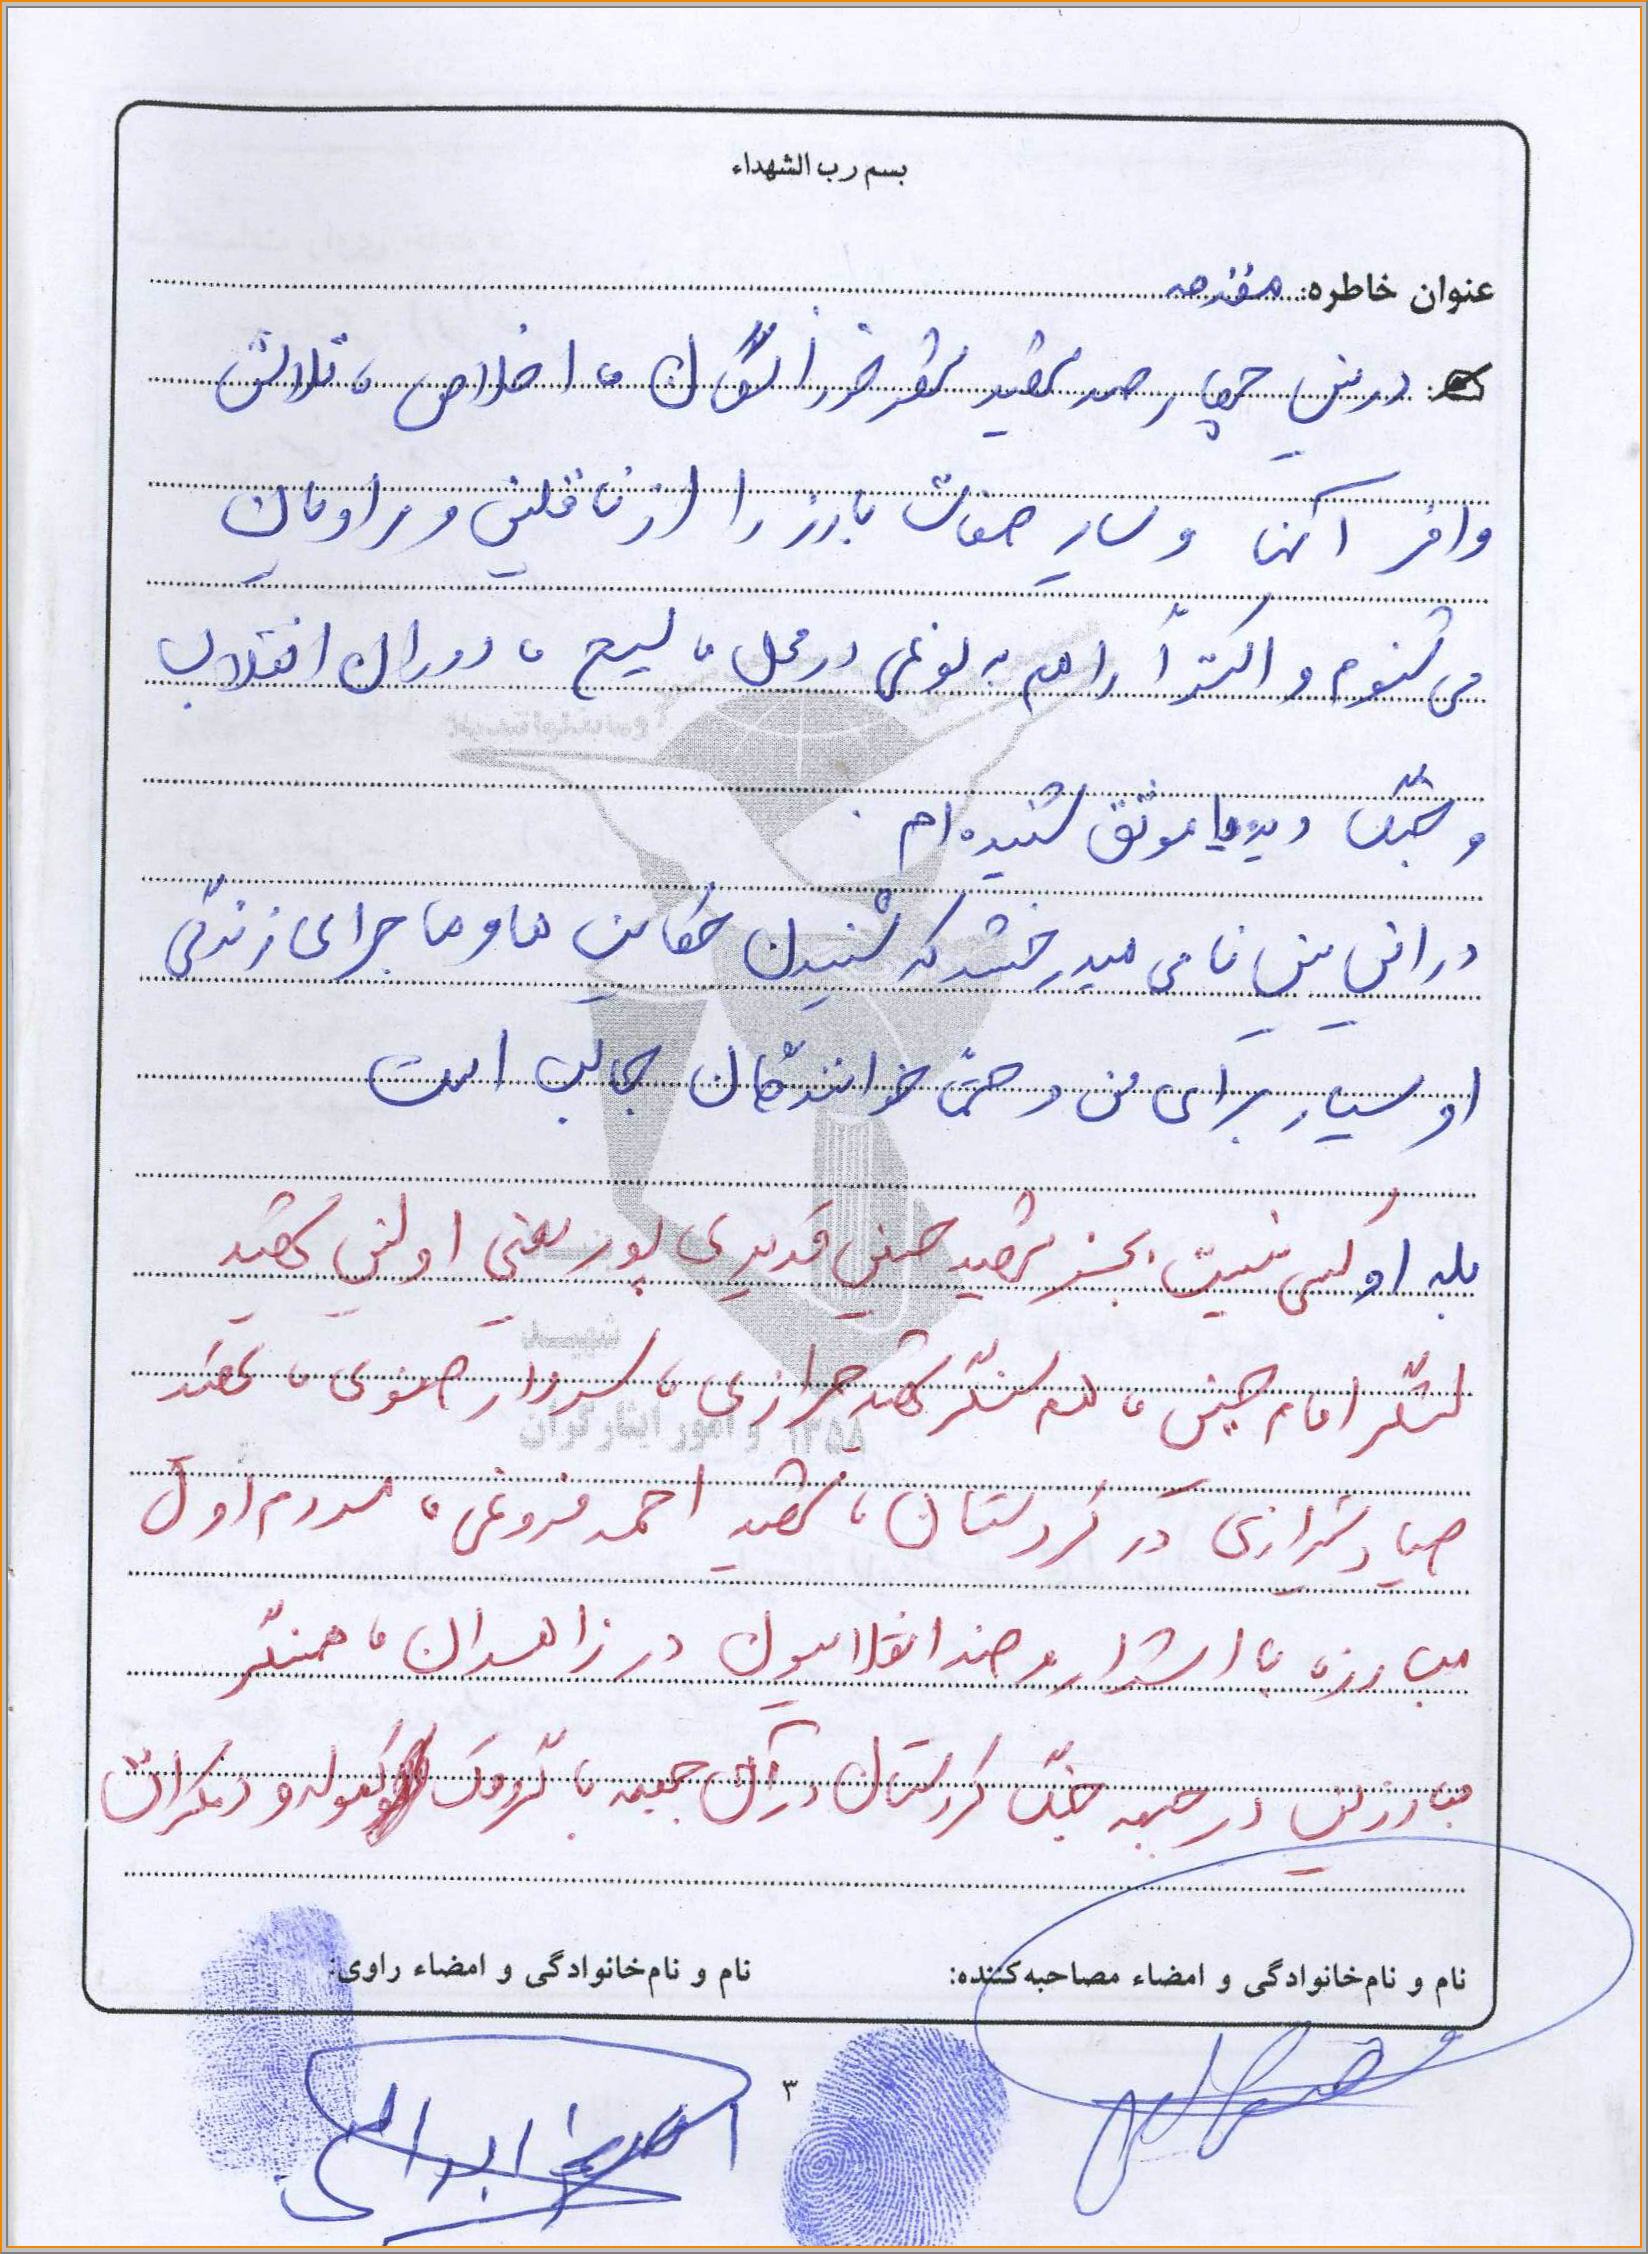 بسم رب الشهداء
عنوان خاطره: مقدمه
در بین چهار صد شهید شهر خوراسگان، اخلاص، تلاش
وافر آنها و سایر صفات بارز را از ناقلین و راویان
می شنوم و اکثراً را هم به نوعی در محل، بسیج، دوران انقلاب
و جنگ دیده یا موثق شنیده ام.
در این بین نامی میدرخشد که شنیدن حکایت ها و ماجرای زندگی
او بسیار برای من و حتی خوانندگان جالب است
بله او کسی نیست بجز شهید حسین قدیری پور یعنی اولین شهید
لشگر امام حسین، هم سنگر شهید خرازی، سردار صفوی، شهید
صیاد شیرازی در کردستان، شهید احمد فروغی، مرد اول
مبارزه با اشرار و ضد انقلابیون در زاهدان، همسنگر
مبارزین در جبهه جنگ کردستان در آن جبهه با گروهک کومله و دمکرات
نام و نام‌خانوادگی و امضاء مصاحبه‌کننده:
نام و نام‌خانوادگی و امضاء راوی:
۳